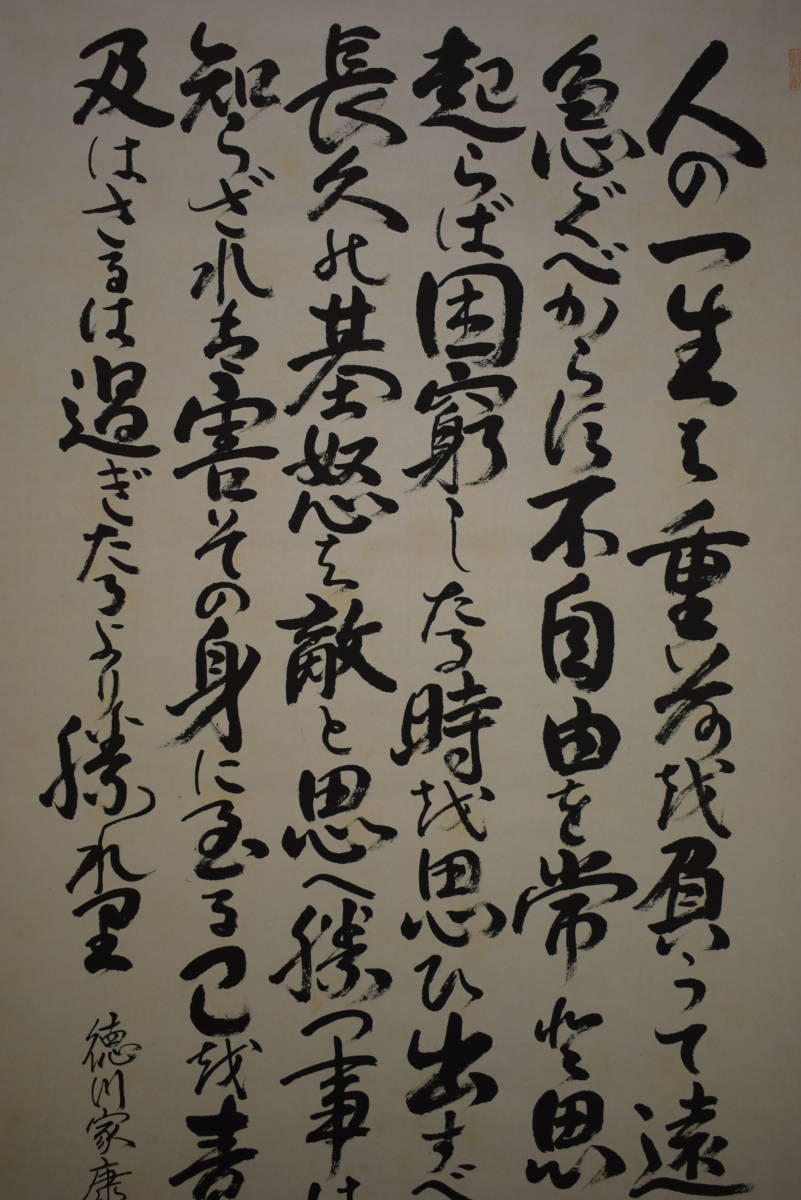 人の一生は重荷を負うて遠
急ぐべからず不自由を常と思
起らば困窮したる時を思ひ出すべ
長久の基怒は敵と思へ勝つ事は
知らざれは害その身に至る己を責
及はさるは過ぎたるより勝れり
徳川家康